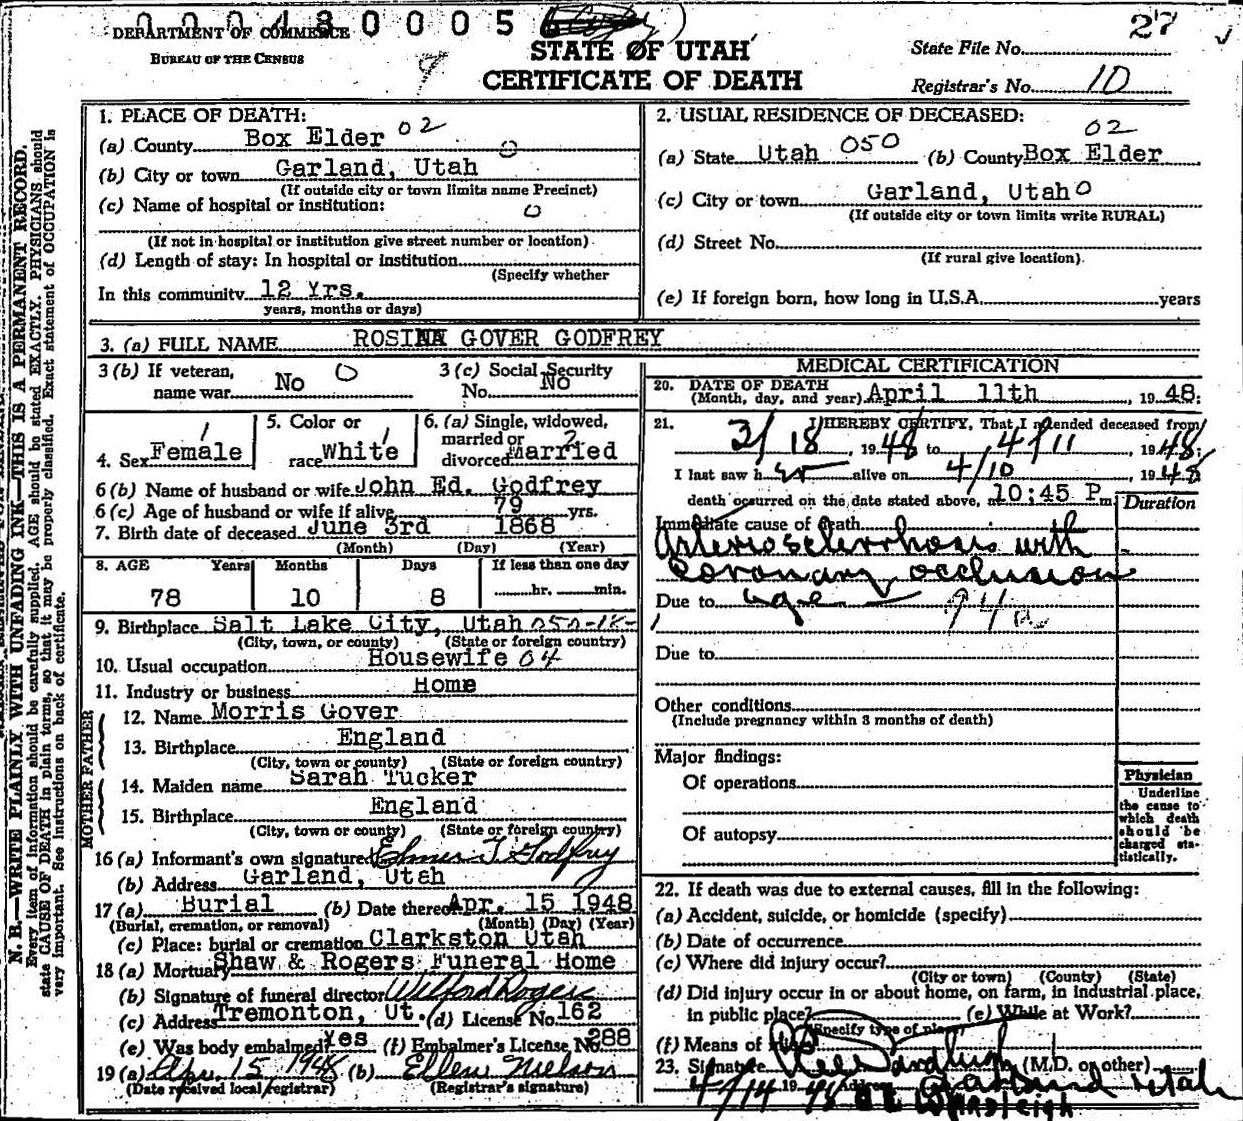 0 0 0 4 8 0 0 0 5 6
27
DEPARTMENT OF COMMERCE
BUREAU OF THE CENSUS
STATE OF UTAH
CERTIFICATE OF DEATH
State File No.
Registrar's No. 10
N. B.—WRITE PLAINLY WITH UNFADING INK—THIS IS A PERMANENT RECORD.
Every item of information should be carefully supplied. AGE should be stated EXACTLY. PHYSICIANS should
state CAUSE OF DEATH in plain terms, so that it may be properly classified. Exact statement of OCCUPATION is
very important. See instructions on back of certificate.
1. PLACE OF DEATH:
(a) County Box Elder 02
(b) City or town Garland, Utah 0
(If outside city or town limits name Precinct)
(c) Name of hospital or institution:
0
(If not in hospital or institution give street number or location)
(d) Length of stay: In hospital or institution
(Specify whether
In this community 12 Yrs.
years, months or days)
2. USUAL RESIDENCE OF DECEASED:
02
(a) State Utah 050 (b) County Box Elder
(c) City or town Garland, Utah 0
(If outside city or town limits write RURAL)
(d) Street No.
(If rural give location)
(e) If foreign born, how long in U.S.A. years
3. (a) FULL NAME ROSINA GOVER GODFREY
3 (b) If veteran, name war No 0
3 (c) Social Security No. No
4. Sex Female 1
5. Color or race White 1
6. (a) Single, widowed, married or divorced Married 2
6 (b) Name of husband or wife John Ed. Godfrey
6 (c) Age of husband or wife if alive 79 yrs.
7. Birth date of deceased June 3rd 1868
(Month) (Day) (Year)
8. AGE Years Months Days If less than one day
78 10 8 hr. min.
9. Birthplace Salt Lake City, Utah
(City, town, or county) (State or foreign country)
10. Usual occupation Housewife 04
11. Industry or business Home
FATHER
12. Name Morris Gover
13. Birthplace England
(City, town or county) (State or foreign country)
MOTHER
14. Maiden name Sarah Tucker
15. Birthplace England
(City, town or county) (State or foreign country)
16 (a) Informant's own signature Elmer T. Godfrey
(b) Address Garland, Utah
17 (a) Burial (b) Date thereof Apr. 15 1948
(Burial, cremation, or removal) (Month) (Day) (Year)
(c) Place: burial or cremation Clarkston Utah
18 (a) Mortuary Shaw & Rogers Funeral Home
(b) Signature of funeral director Wilford Rogers
(c) Address Tremonton, Ut. (d) License No. 162
(e) Was body embalmed? Yes (f) Embalmer's License No. 288
19 (a) Apr. 15, 1948 (b) Ellene Nielson
(Date received local registrar) (Registrar's signature)
MEDICAL CERTIFICATION
20. DATE OF DEATH
(Month, day, and year) April 11th, 1948
21. I HEREBY CERTIFY, That I attended deceased from
3/18, 1948 to 4/11, 1948
I last saw h er alive on 4/10, 1948
death occurred on the date stated above, at 10:45 P m.
Duration
Immediate cause of death
Arteriosclerrhosis with
Coronary occlusion
Due to age 94a
Due to
Other conditions
(Include pregnancy within 3 months of death)
Major findings:
Of operations
Of autopsy
Physician
Underline
the cause to
which death
should be
charged sta-
tistically.
22. If death was due to external causes, fill in the following:
(a) Accident, suicide, or homicide (specify)
(b) Date of occurrence
(c) Where did injury occur?
(City or town) (County) (State)
(d) Did injury occur in or about home, on farm, in industrial place,
in public place? (e) While at Work?
(Specify type of place)
(f) Means of injury
23. Signature (M.D. or other)
4/14 1948 Address Garland Utah